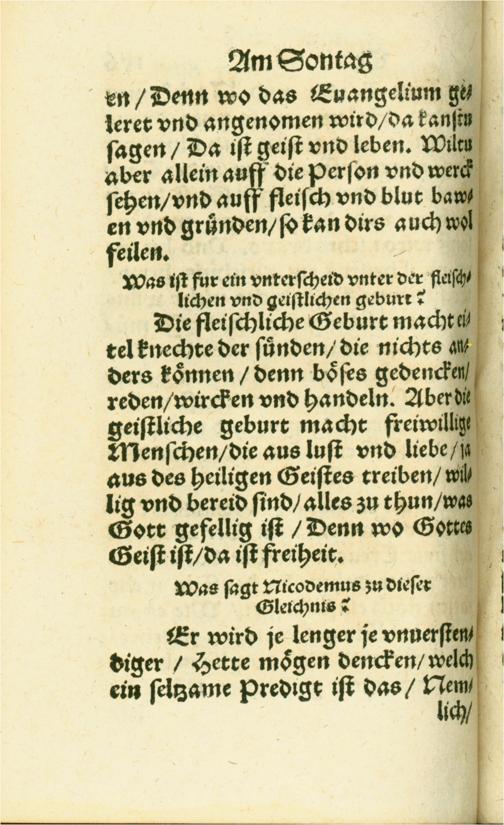 Am Sontag
en / Denn wo das Euangelium ge-
leret vnd angenomen wird/da kanstu
sagen / Da ist geist vnd leben. Wiltu
aber allein auff die Person vnd werck
sehen/vnd auff fleisch vnd blut baw-
en vnd gründen/so kan dirs auch wol
feilen.
Was ist fur ein vnterscheid vnter der fleisch-
lichen vnd geistlichen geburt?
Die fleischliche Geburt macht ei-
tel knechte der sünden/die nichts an-
ders können / denn böses gedencken/
reden/wircken vnd handeln. Aber die
geistliche geburt macht freiwillige
Menschen/die aus lust vnd liebe/ja
aus des heiligen Geistes treiben/wil-
lig vnd bereid sind/alles zu thun/was
Gott gefellig ist / Denn wo Gottes
Geist ist/da ist freiheit.
Was sagt Nicodemus zu dieser
Gleichnis?
Er wird je lenger je vnuersten-
diger / Hette mögen dencken/welch
ein seltzame Predigt ist das / Nem-
lich/